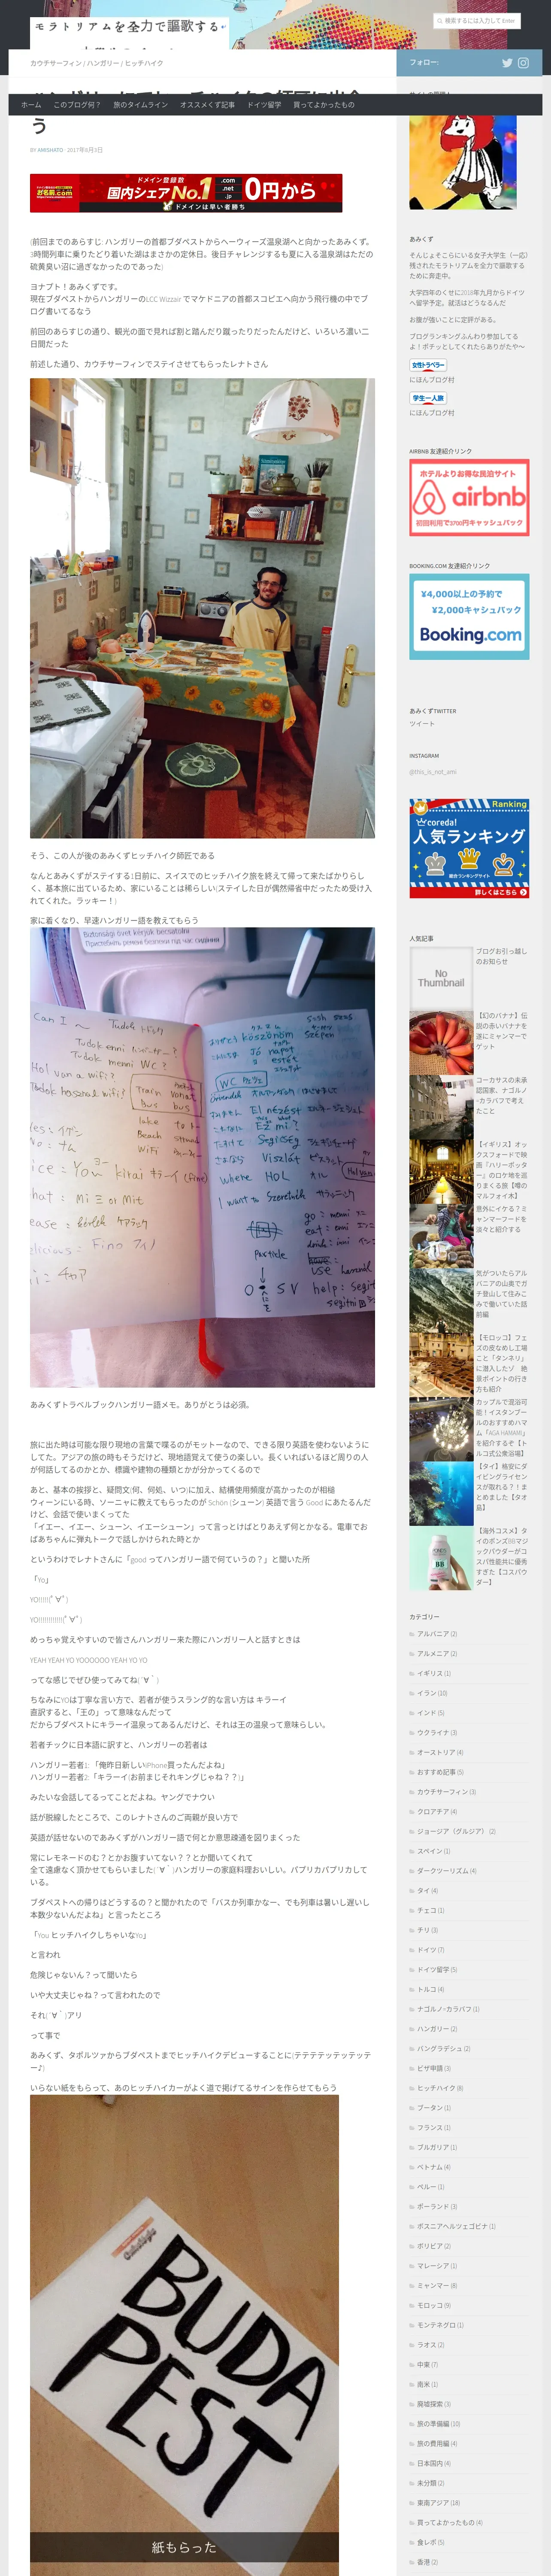 モラトリアムを全力で謳歌する
検索するには入力して Enter
カウチサーフィン / ハンガリー / ヒッチハイク
フォロー:
ホーム このブログ何？ 旅のタイムライン オススメくず記事 ドイツ留学 買ってよかったもの
う
BY AMISHATO · 2017年8月3日
ドメイン登録実績
お名前.com
国内シェアNo.1
.com
.net
.jp
0円から
ドメインは早い者勝ち
(前回までのあらすじ: ハンガリーの首都ブダペストからヘーウィーズ温泉湖へと向かったあみくず。
3時間列車に乗りたどり着いた湖はまさかの定休日。後日チャレンジするも夏に入る温泉湖はただの
硫黄臭い沼に過ぎなかったのであった)
ヨナプト！あみくずです。
現在ブダペストからハンガリーのLCC Wizzair でマケドニアの首都スコピエへ向かう飛行機の中でブ
ログ書いてるなう
前回のあらすじの通り、観光の面で見れば割と踏んだり蹴ったりだったんだけど、いろいろ濃い二
日間だった
前述した通り、カウチサーフィンでステイさせてもらったレナトさん
そう、この人が後のあみくずヒッチハイク師匠である
なんとあみくずがステイする1日前に、スイスでのヒッチハイク旅を終えて帰って来たばかりらし
く、基本旅に出ているため、家にいることは稀らしい(ステイした日が偶然帰省中だったため受け入
れてくれた。ラッキー！)
家に着くなり、早速ハンガリー語を教えてもらう
あみくずトラベルブックハンガリー語メモ。ありがとうは必須。
旅に出た時は可能な限り現地の言葉で喋るのがモットーなので、できる限り英語を使わないように
してた。アジアの旅の時もそうだけど、現地語覚えて使うの楽しい。長くいればいるほど周りの人
が何話してるのかとか、標識や建物の種類とかが分かってくるので
あと、基本の挨拶と、疑問文(何、何処、いつ)に加え、結構使用頻度が高かったのが相槌
ウィーンにいる時、ソーニャに教えてもらったのが Schön (シューン) 英語で言う Good にあたるんだ
けど、会話で使いまくってた
「イエー、イエー、シューン、イエーシューン」って言っとけばとりあえず何とかなる。電車でお
ばあちゃんに弾丸トークで話しかけられた時とか
というわけでレナトさんに「good ってハンガリー語で何ていうの？」と聞いた所
「Yo」
YO!!!!!(ﾟ∀ﾟ)
YO!!!!!!!!!!!!(ﾟ∀ﾟ)
めっちゃ覚えやすいので皆さんハンガリー来た際にハンガリー人と話すときは
YEAH YEAH YO YOOOOOO YEAH YO YO
ってな感じでぜひ使ってみてね(´∀｀)
ちなみにYOは丁寧な言い方で、若者が使うスラング的な言い方は キラーイ
直訳すると、「王の」って意味なんだって
だからブダペストにキラーイ温泉ってあるんだけど、それは王の温泉って意味らしい。
若者チックに日本語に訳すと、ハンガリーの若者は
ハンガリー若者1: 「俺昨日新しいiPhone買ったんだよね」
ハンガリー若者2:「キラーイ(お前まじそれキングじゃね？？)」
みたいな会話してるってことだよね。ヤングでナウい
話が脱線したところで、このレナトさんのご両親が良い方で
英語が話せないのであみくずがハンガリー語で何とか意思疎通を図りまくった
常にレモネードのむ？とかお腹すいてない？？とか聞いてくれて
全て遠慮なく頂かせてもらいました(´∀｀)ハンガリーの家庭料理おいしい。パプリカパプリカして
いる。
ブダペストへの帰りはどうするの？と聞かれたので「バスか列車かなー、でも列車は暑いし遅いし
本数少ないんだよね」と言ったところ
「You ヒッチハイクしちゃいなYo」
と言われ
危険じゃないん？って聞いたら
いや大丈夫じゃね？って言われたので
それ(´∀｀)アリ
って事で
あみくず、タポルツァからブダペストまでヒッチハイクデビューすることに(テテテテッテッテッテ
ー♪)
いらない紙をもらって、あのヒッチハイカーがよく道で掲げてるサインを作らせてもらう
BUDA
PEST
紙もらった
あみくず
そんじょそこらにいる女子大学生（一応）
残されたモラトリアムを全力で謳歌する
ために奔走中。
大学四年のくせに2018年九月からドイツ
へ留学予定。就活はどうなるんだ
お腹が強いことに定評がある。
ブログランキングふんわり参加してる
よ！ポチッとしてくれたらありがたや〜
女性トラベラー
にほんブログ村
学生一人旅
にほんブログ村
AIRBNB 友達紹介リンク
ホテルよりお得な民泊サイト
airbnb
初回利用で3700円キャッシュバック
BOOKING.COM 友達紹介リンク
¥4,000以上の予約で
¥2,000キャッシュバック
Booking.com
あみくずTWITTER
ツイート
INSTAGRAM
@this_is_not_ami
Ranking
coreda!
人気ランキング
総合ランキングサイト
詳しくはこちら
人気記事
No
Thumbnail
ブログお引っ越し
のお知らせ
【幻のバナナ】伝
説の赤いバナナを
遂にミャンマーで
ゲット
コーカサスの未承
認国家、ナゴルノ
=カラバフで考え
たこと
【イギリス】オッ
クスフォードで映
画『ハリーポッタ
ー』のロケ地を巡
りまくる旅【噂の
マルフォイ本】
意外にイケる？ミ
ャンマーフードを
淡々と紹介する
気がついたらアル
バニアの山奥でガ
チ登山して住みこ
みで働いていた話
前編
【モロッコ】フェ
ズの皮なめし工場
こと「タンネリ」
に潜入したゾ 絶
景ポイントの行き
方も紹介
カップルで混浴可
能！イスタンブー
ルのおすすめハマ
ム「AGA HAMAMI」
を紹介するぞ【ト
ルコ式公衆浴場】
【タイ】格安にダ
イビングライセン
スが取れる？！ま
とめました【タオ
島】
【海外コスメ】タ
イのポンズBBマジ
ックパウダーがコ
スパ性能共に優秀
すぎた【コスパウ
ダー】
カテゴリー
アルバニア (2)
アルメニア (2)
イギリス (1)
イラン (10)
インド (5)
ウクライナ (3)
オーストリア (4)
おすすめ記事 (5)
カウチサーフィン (3)
クロアチア (4)
ジョージア（グルジア） (2)
スペイン (1)
ダークツーリズム (4)
タイ (4)
チェコ (1)
チリ (3)
ドイツ (7)
ドイツ留学 (5)
トルコ (4)
ナゴルノ=カラバフ (1)
ハンガリー (2)
バングラデシュ (2)
ビザ申請 (3)
ヒッチハイク (8)
ブータン (1)
フランス (1)
ブルガリア (1)
ベトナム (4)
ペルー (1)
ポーランド (3)
ボスニアヘルツェゴビナ (1)
ボリビア (2)
マレーシア (1)
ミャンマー (8)
モロッコ (9)
モンテネグロ (1)
ラオス (2)
中東 (7)
南米 (1)
廃墟探索 (3)
旅の準備編 (10)
旅の費用編 (4)
日本国内 (4)
未分類 (2)
東南アジア (18)
買ってよかったもの (4)
食レポ (5)
香港 (2)